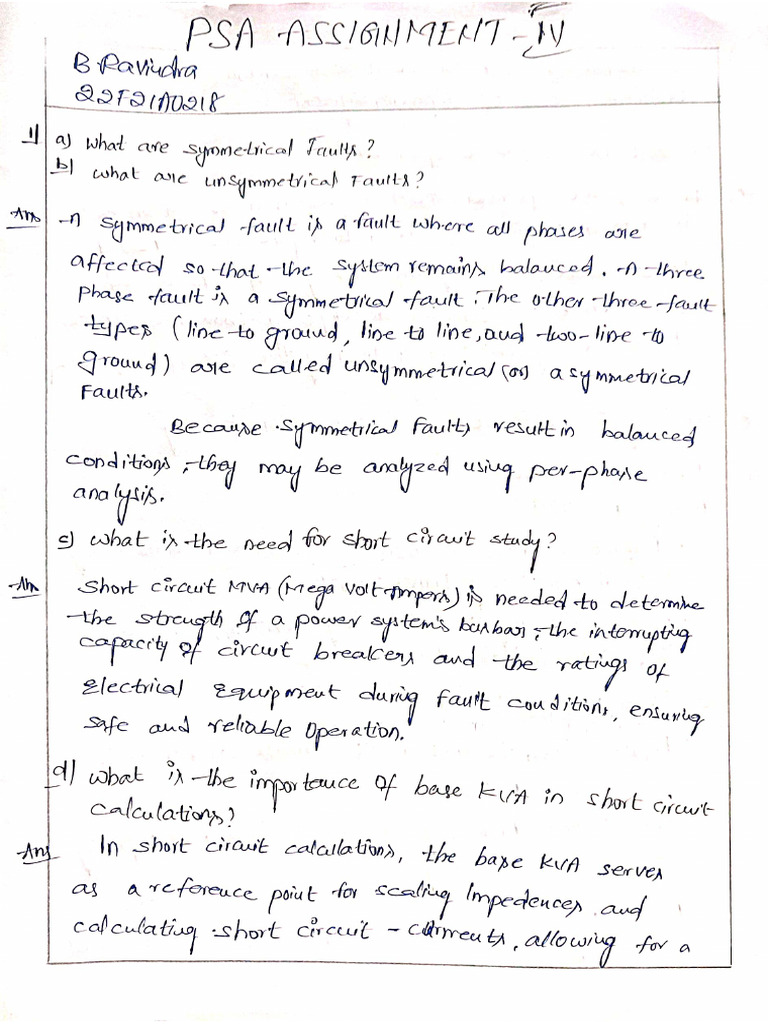 PSA ASSIGNMENT-IV
B Ravindra
22F21A0218
1) a) What are symmetrical Faults?
b) What are unsymmetrical Faults?
Ans A symmetrical fault is a fault where all phases are
affected so that the system remains balanced. A three
phase fault is a symmetrical fault. The other three fault
types (line to ground, line to line, and two-line to
ground) are called unsymmetrical (or) asymmetrical
Faults.
Because symmetrical Faults result in balanced
conditions, they may be analyzed using per-phase
analysis.
c) What is the need for short circuit study?
Ans Short circuit MVA (Mega Volt Ampers) is needed to determine
the strength of a power system's busbar, the interrupting
capacity of circuit breakers and the ratings of
Electrical Equipment during fault conditions, ensuring
safe and reliable operation.
d) What is the importance of base KVA in short circuit
calculations?
Ans In short circuit calculations, the base KVA serves
as a reference point for scaling Impedences and
calculating short circuit - currents, allowing for a